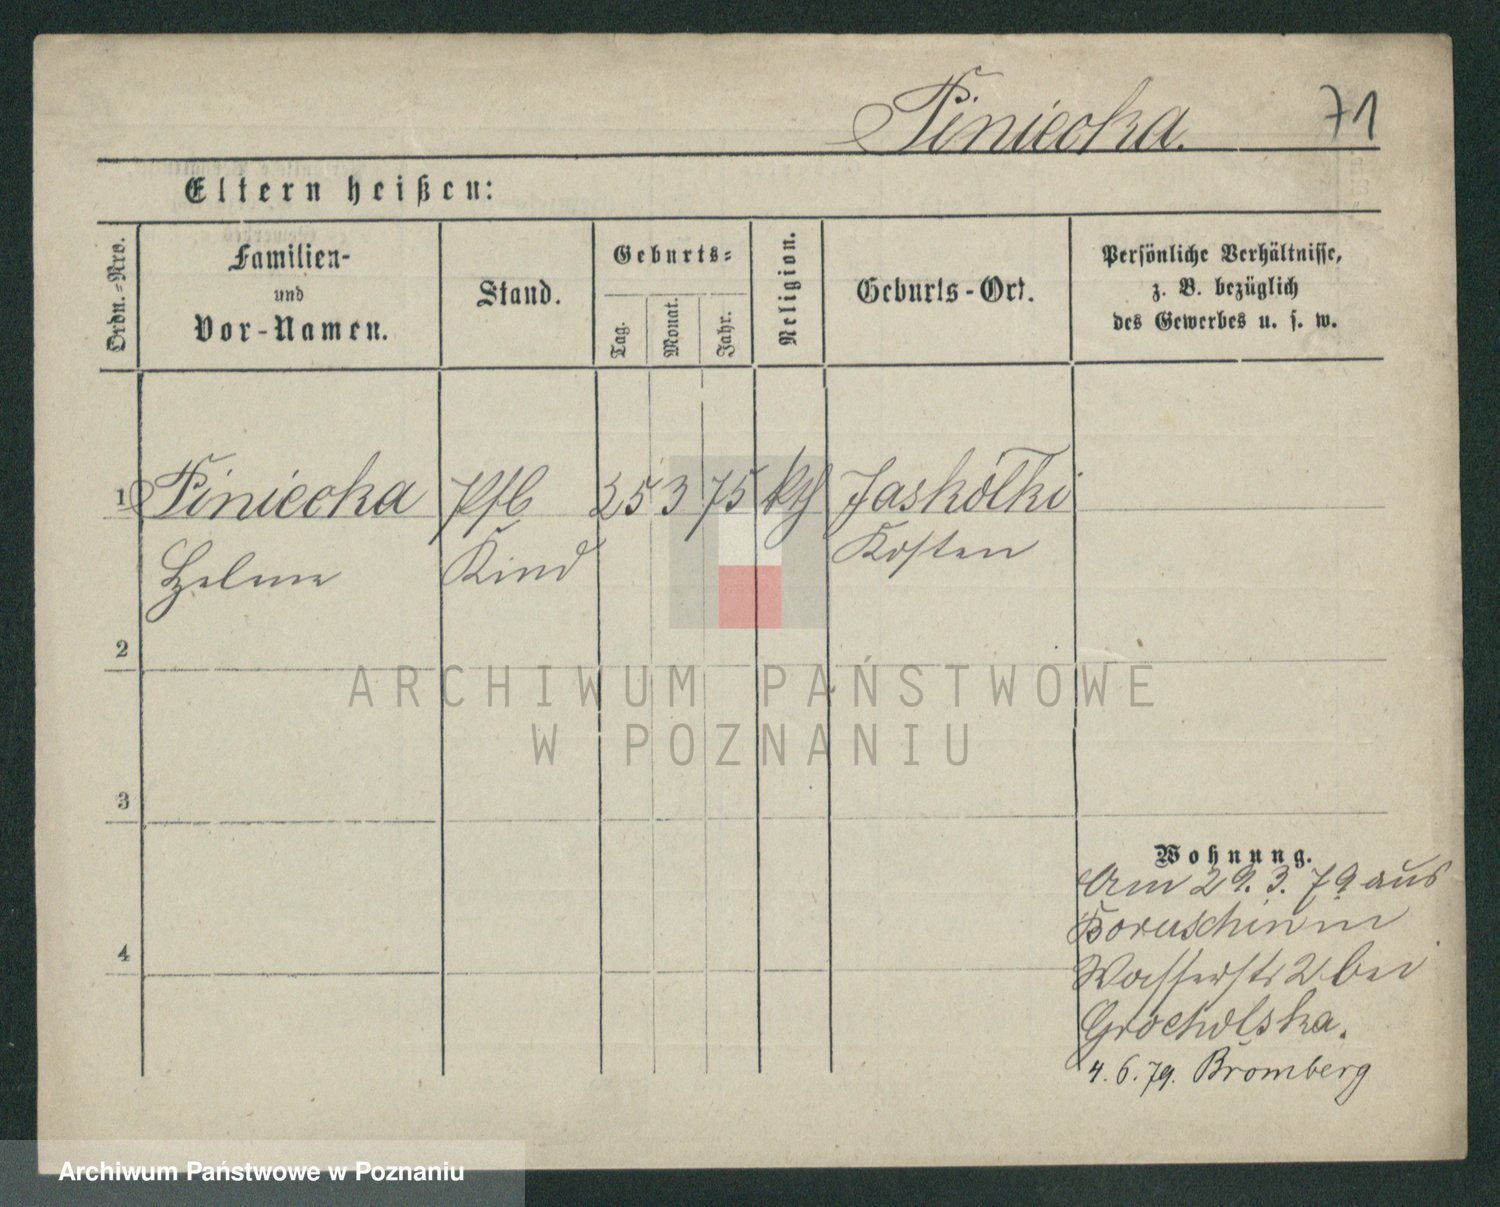 Piniecka. 71
Eltern heißen:
Ordn.-Nro.
Familien-
und
Vor-Namen.
Stand.
Geburts-
Tag.
Monat.
Jahr.
Religion.
Geburts-Ort.
Persönliche Verhältnisse,
z. B. bezüglich
des Gewerbes u. s. w.
1 Piniecka Pfl 25 3 75 kth Jaskółki
Kind Kosten
2
ARCHIWUM PAŃSTWOWE
W POZNANIU
3
Wohnung.
Am 29. 3. 79 aus
Boruschin in
4
Wasserstr 2 bei
Grocholska.
4. 6. 79. Bromberg
Archiwum Państwowe w Poznaniu